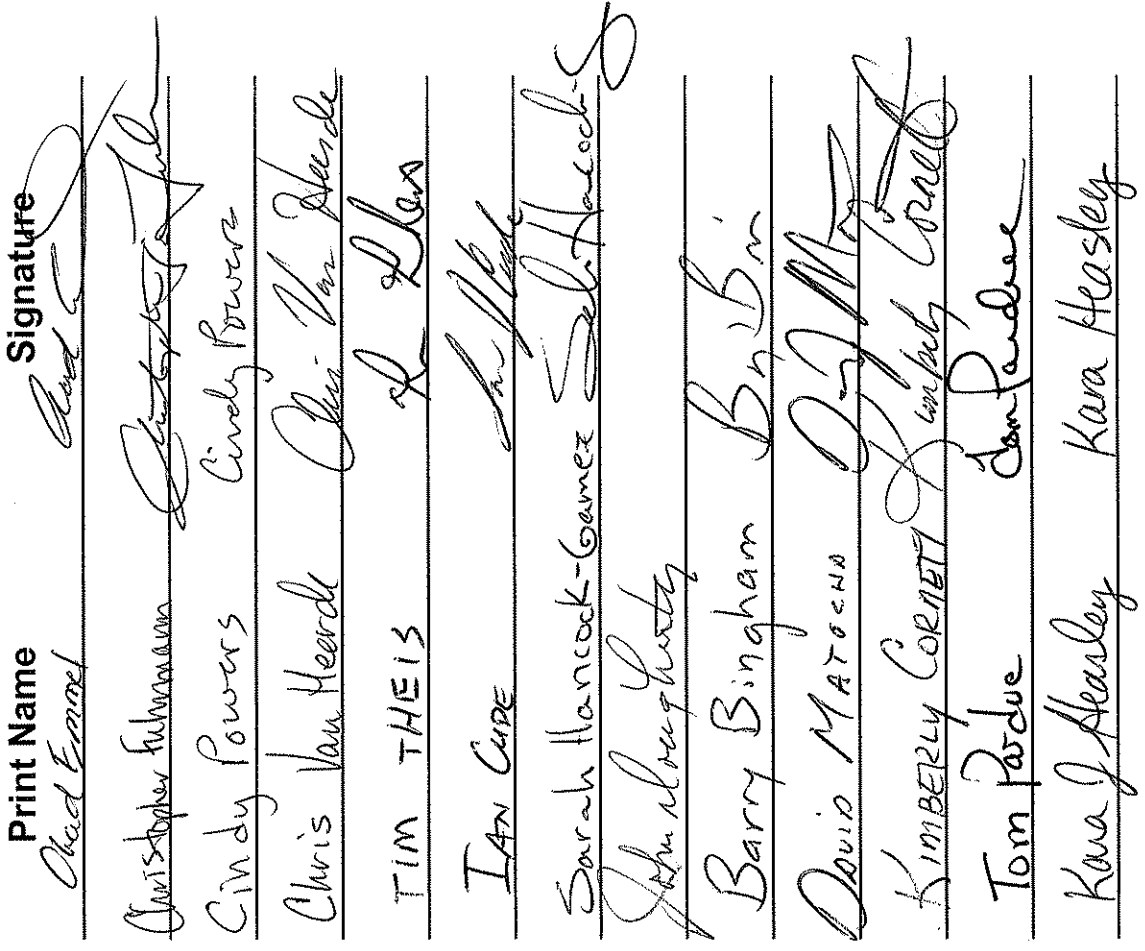 Print Name Signature
Chad Emmel Chad E
Christopher Fuhrmann
Cindy Powers Cindy Powers
Chris Van Heerde Chris Van Heerde
TIM THEIS
IAN CUPE
Sarah Hancock-Gamez Sarah Hancock-G
John Doughty
Barry Bingham
David MATOCHA
KIMBERLY CORNETT Kimberly Cornett
Tom Pardue Tom Pardue
Kara J Heasley Kara Heasley